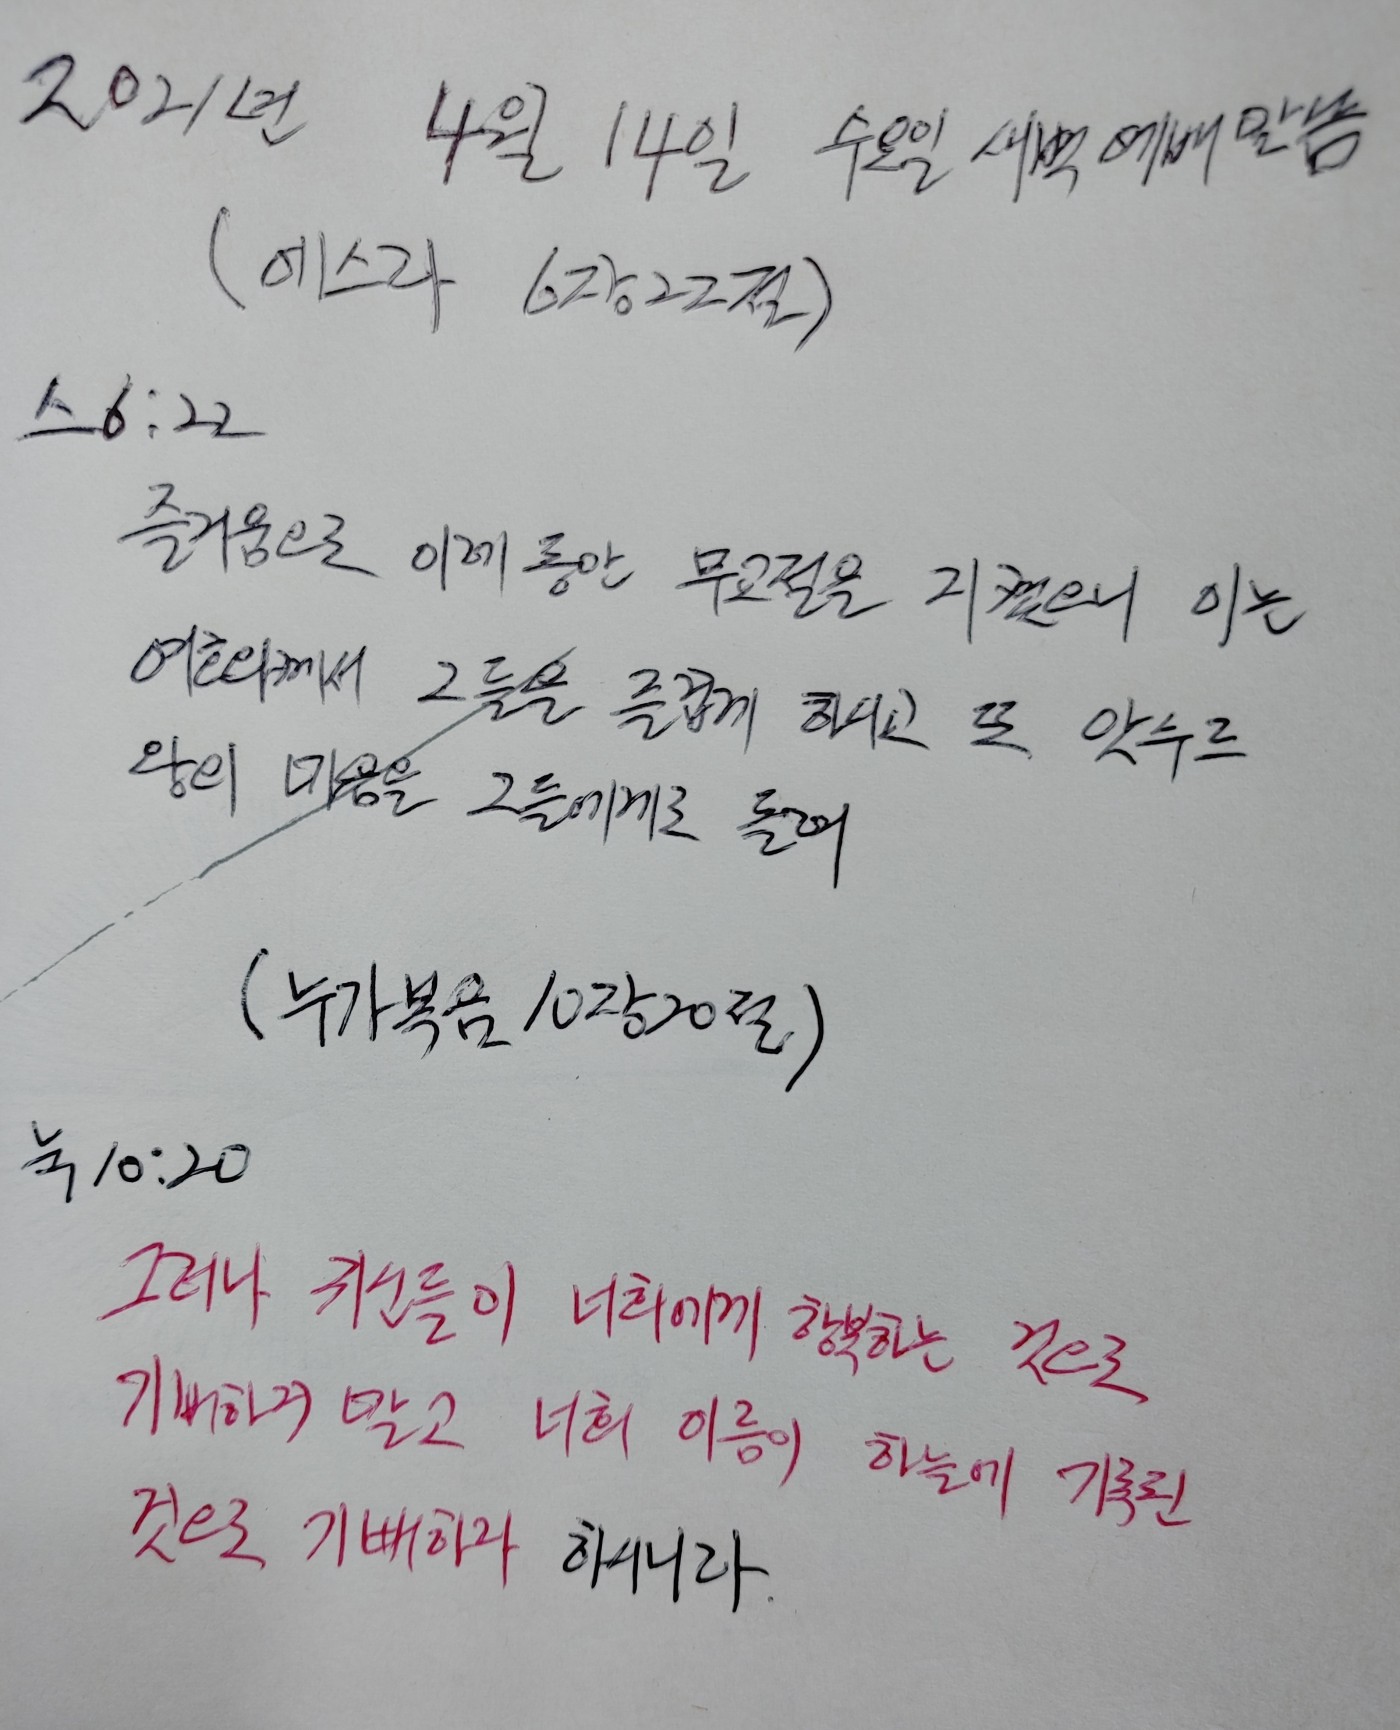 2021년 4월 14일 수요일 새벽예배말씀
(에스라 6장22절)
스6:22
즐거움으로 이레 동안 무교절을 지켰으니 이는
여호와께서 그들을 즐겁게 하시고 또 앗수르
왕의 마음을 그들에게로 돌려
(누가복음 10장20절)
눅10:20
그러나 귀신들이 너희에게 항복하는 것으로
기뻐하지 말고 너희 이름이 하늘에 기록된
것으로 기뻐하라 하시니라.